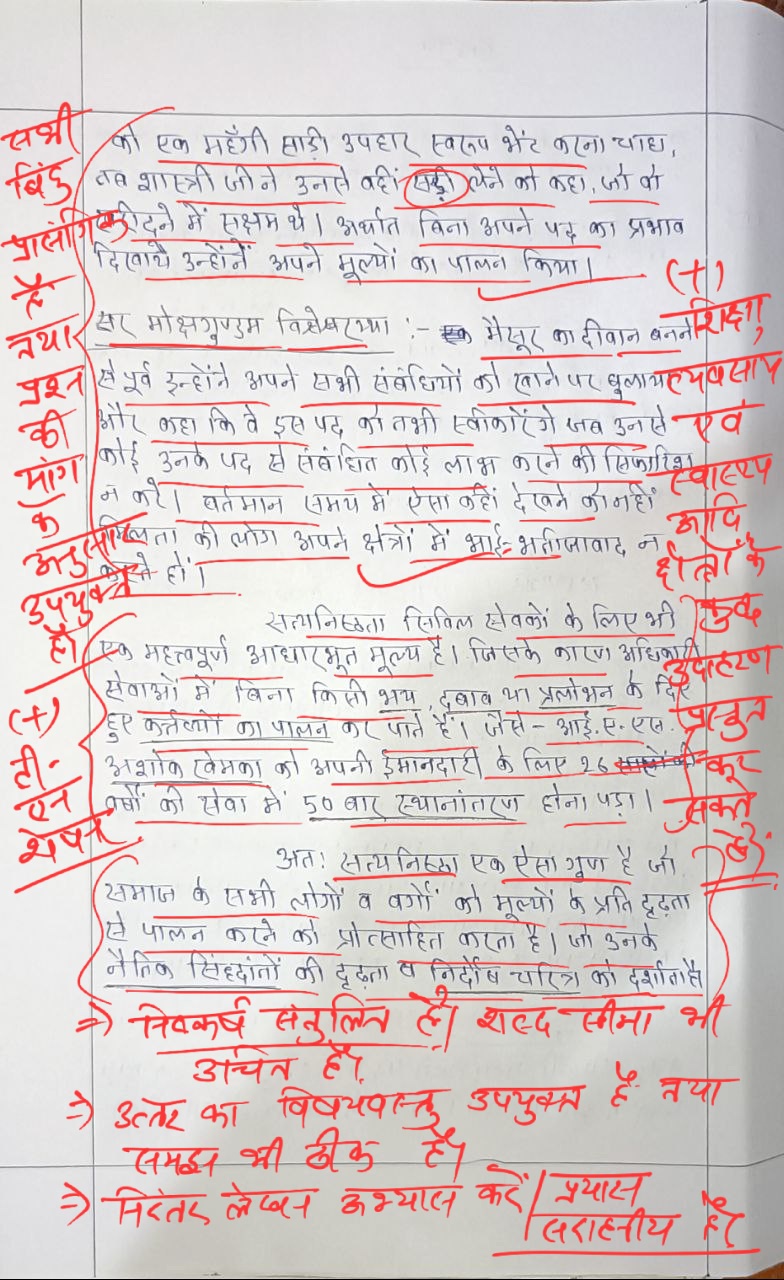 को एक महँगी साड़ी उपहार स्वरूप भेंट करना चाहा,
तब शास्त्री जी ने उनसे वहीं साड़ी लेने को कहा, जो वो
खरीदने में सक्षम थे। अर्थात बिना अपने पद का प्रभाव
दिखाये उन्होंनें अपने मूल्यों का पालन किया।
सर मोक्षगुण्डम विश्वेश्वरय्या :- मैसूर का दीवान बनने
से पूर्व इन्होंने अपने सभी संबंधियों को खाने पर बुलाया
और कहा कि वे इस पद को तभी स्वीकारेंगे जब उनसे
कोई उनके पद से संबंधित कोई लाभ करने की सिफारिश
न करे। वर्तमान समय में ऐसा कहीं देखने को नहीं
मिलता की लोग अपने क्षेत्रों में भाई-भतीजावाद न
करते हों।
सत्यनिष्ठता सिविल सेवकों के लिए भी
एक महत्त्वपूर्ण आधारभूत मूल्य है। जिसके कारण अधिकारी
सेवाओं में बिना किसी भय, दबाव या प्रलोभन के दिए
हुए कर्त्तव्यों का पालन कर पाते हैं। जैसे - आई.ए.एस.
अशोक खेमका को अपनी ईमानदारी के लिए 26
वर्षों की सेवा में 50 बार स्थानांतरण होना पड़ा।
अतः सत्यनिष्ठा एक ऐसा गुण है जो
समाज के सभी लोगों व वर्गों को मूल्यों के प्रति दृढ़ता
से पालन करने को प्रोत्साहित करता है। जो उनके
नैतिक सिंद्दांतों की दृढ़ता व निर्दोष चरित्र को दर्शाता है
सभी
बिंदु
प्रासंगिक
है
तथा
प्रश्न
की
मांग
के
अनुसार
उपयुक्त
है।
(+)
टी.
एन
शेषन
(+)
शिक्षा,
व्यवसाय
एवं
स्वास्थ्य
आदि
क्षेत्रों के
कुछ
उदाहरण
प्रस्तुत
कर
सकते
हैं।
⇒ निष्कर्ष संतुलित है। शब्द सीमा भी
उचित है।
⇒ उत्तर का विषयवस्तु उपयुक्त है तथा
समझ भी ठीक है।
⇒ निरंतर लेखन अभ्यास करें। प्रयास
सराहनीय है।